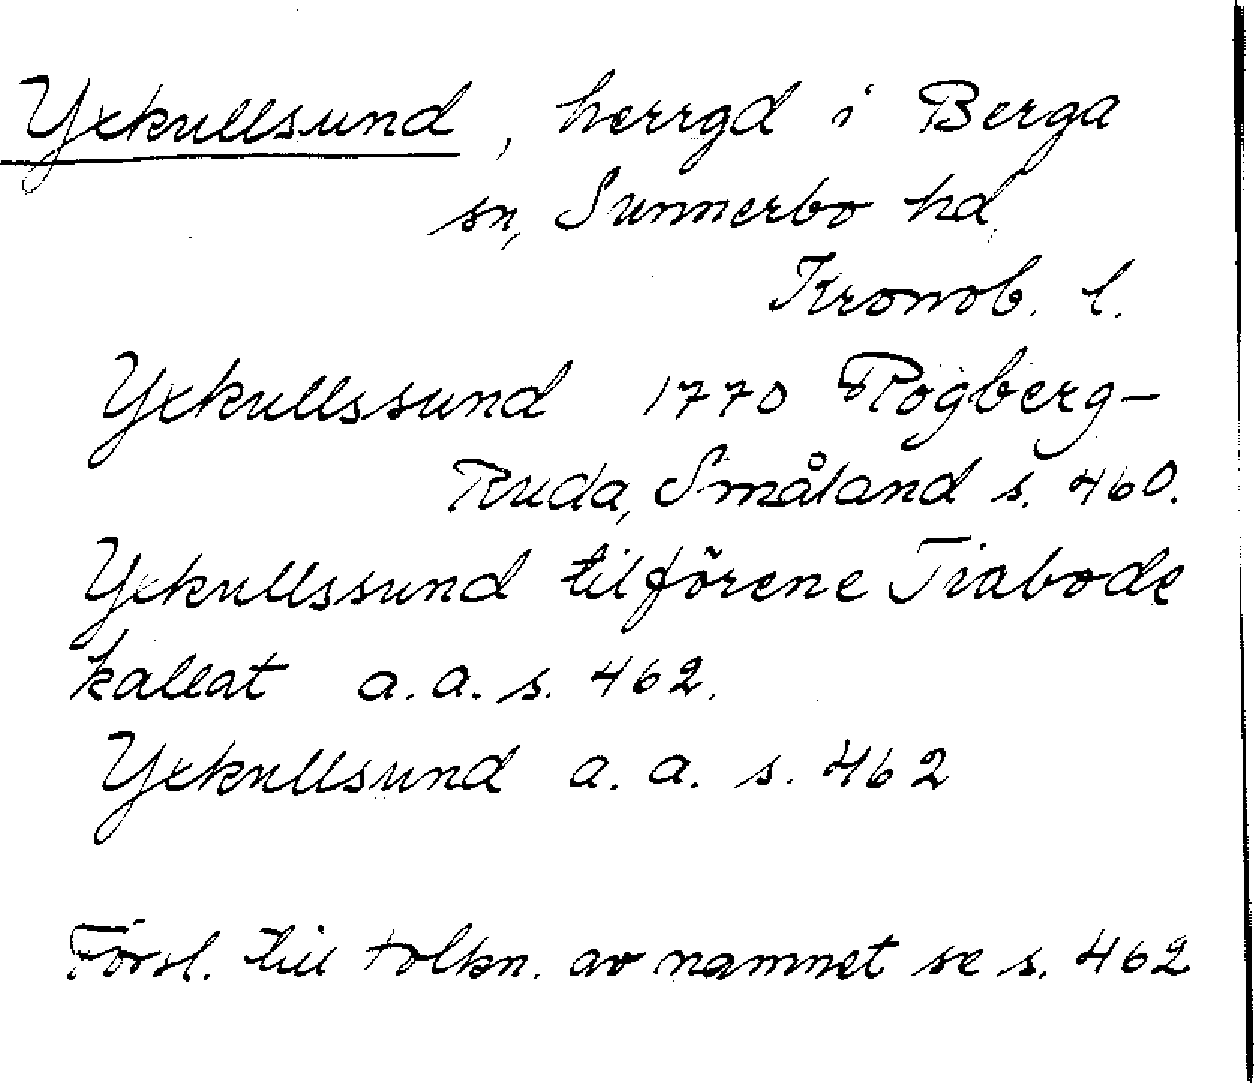 Yxkullsund, herrgd i Berga
sn, Sunnerbo hd,
Kronob. l.
Yxkullssund 1770 Rogberg-
Ruda, Småland s. 460.
Yxkullssund tilförene Tiabode
kallat a. a. s. 462.
Yxkullsund a. a. s. 462
Försl. till tolkn. av namnet se s. 462